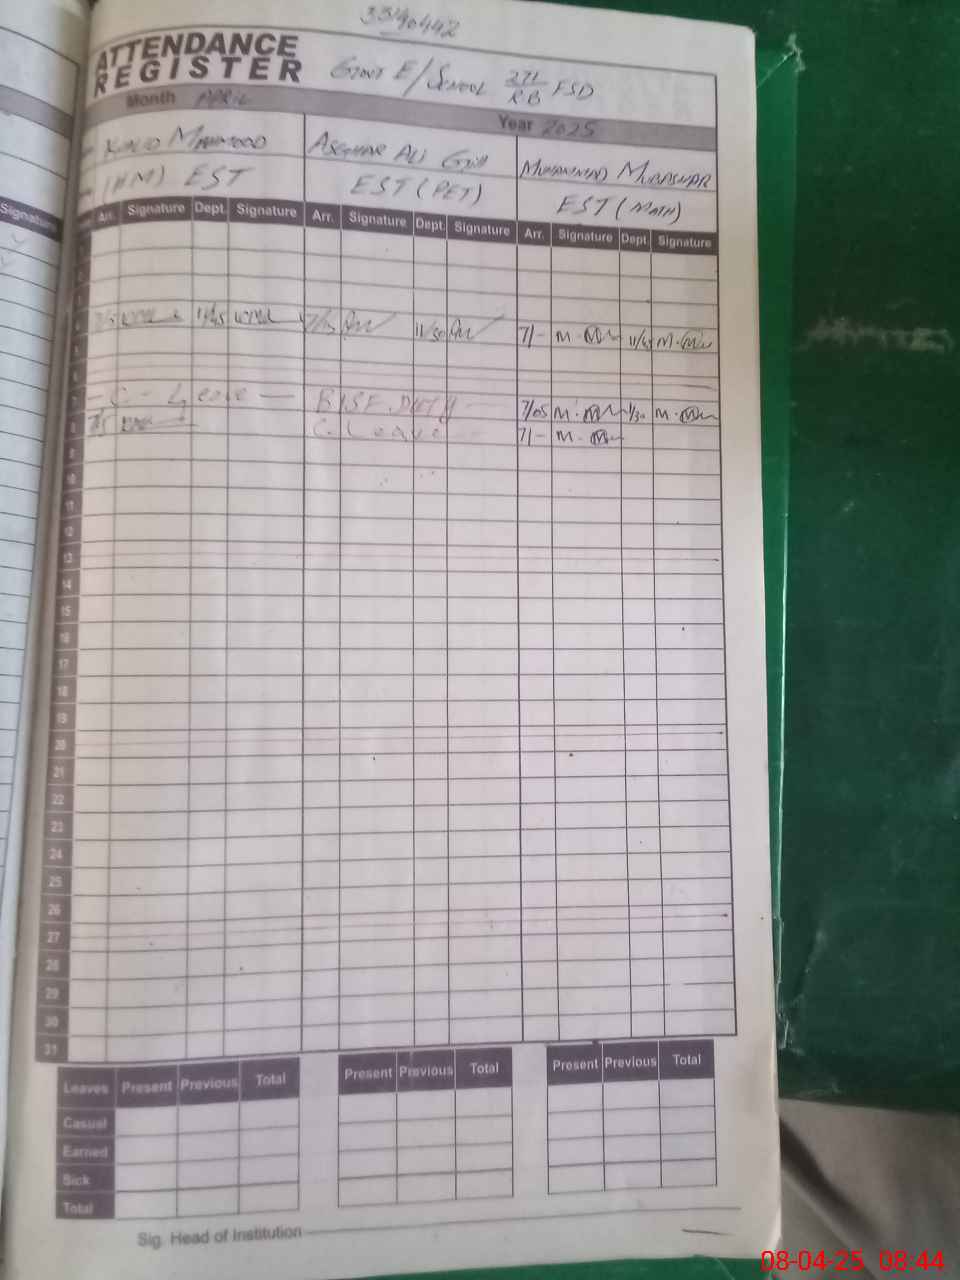 33140442
ATTENDANCE
REGISTER
Govt E/School 271/RB FSD
Month APRIL
Year 2025
Mahmood Asghar Ali Gill Muhammad Mubashar
(HM) EST EST (PET) EST (MATH)
Signature
Arr. Signature Dept. Signature Arr. Signature Dept. Signature Arr. Signature Dept. Signature
4 11/45 11/30 7/- M. 11/45 M.
5
6
7 - C - Leave - BISE Duty 7/05 M. 1/30 M.
8 C. Leave 7/- M.
9
10
11
12
13
14
15
16
17
18
19
20
21
22
23
24
25
26
27
28
29
30
31
Leaves Present Previous Total Present Previous Total Present Previous Total
Casual
Earned
Sick
Total
Sig. Head of Institution
08-04-25 08:44